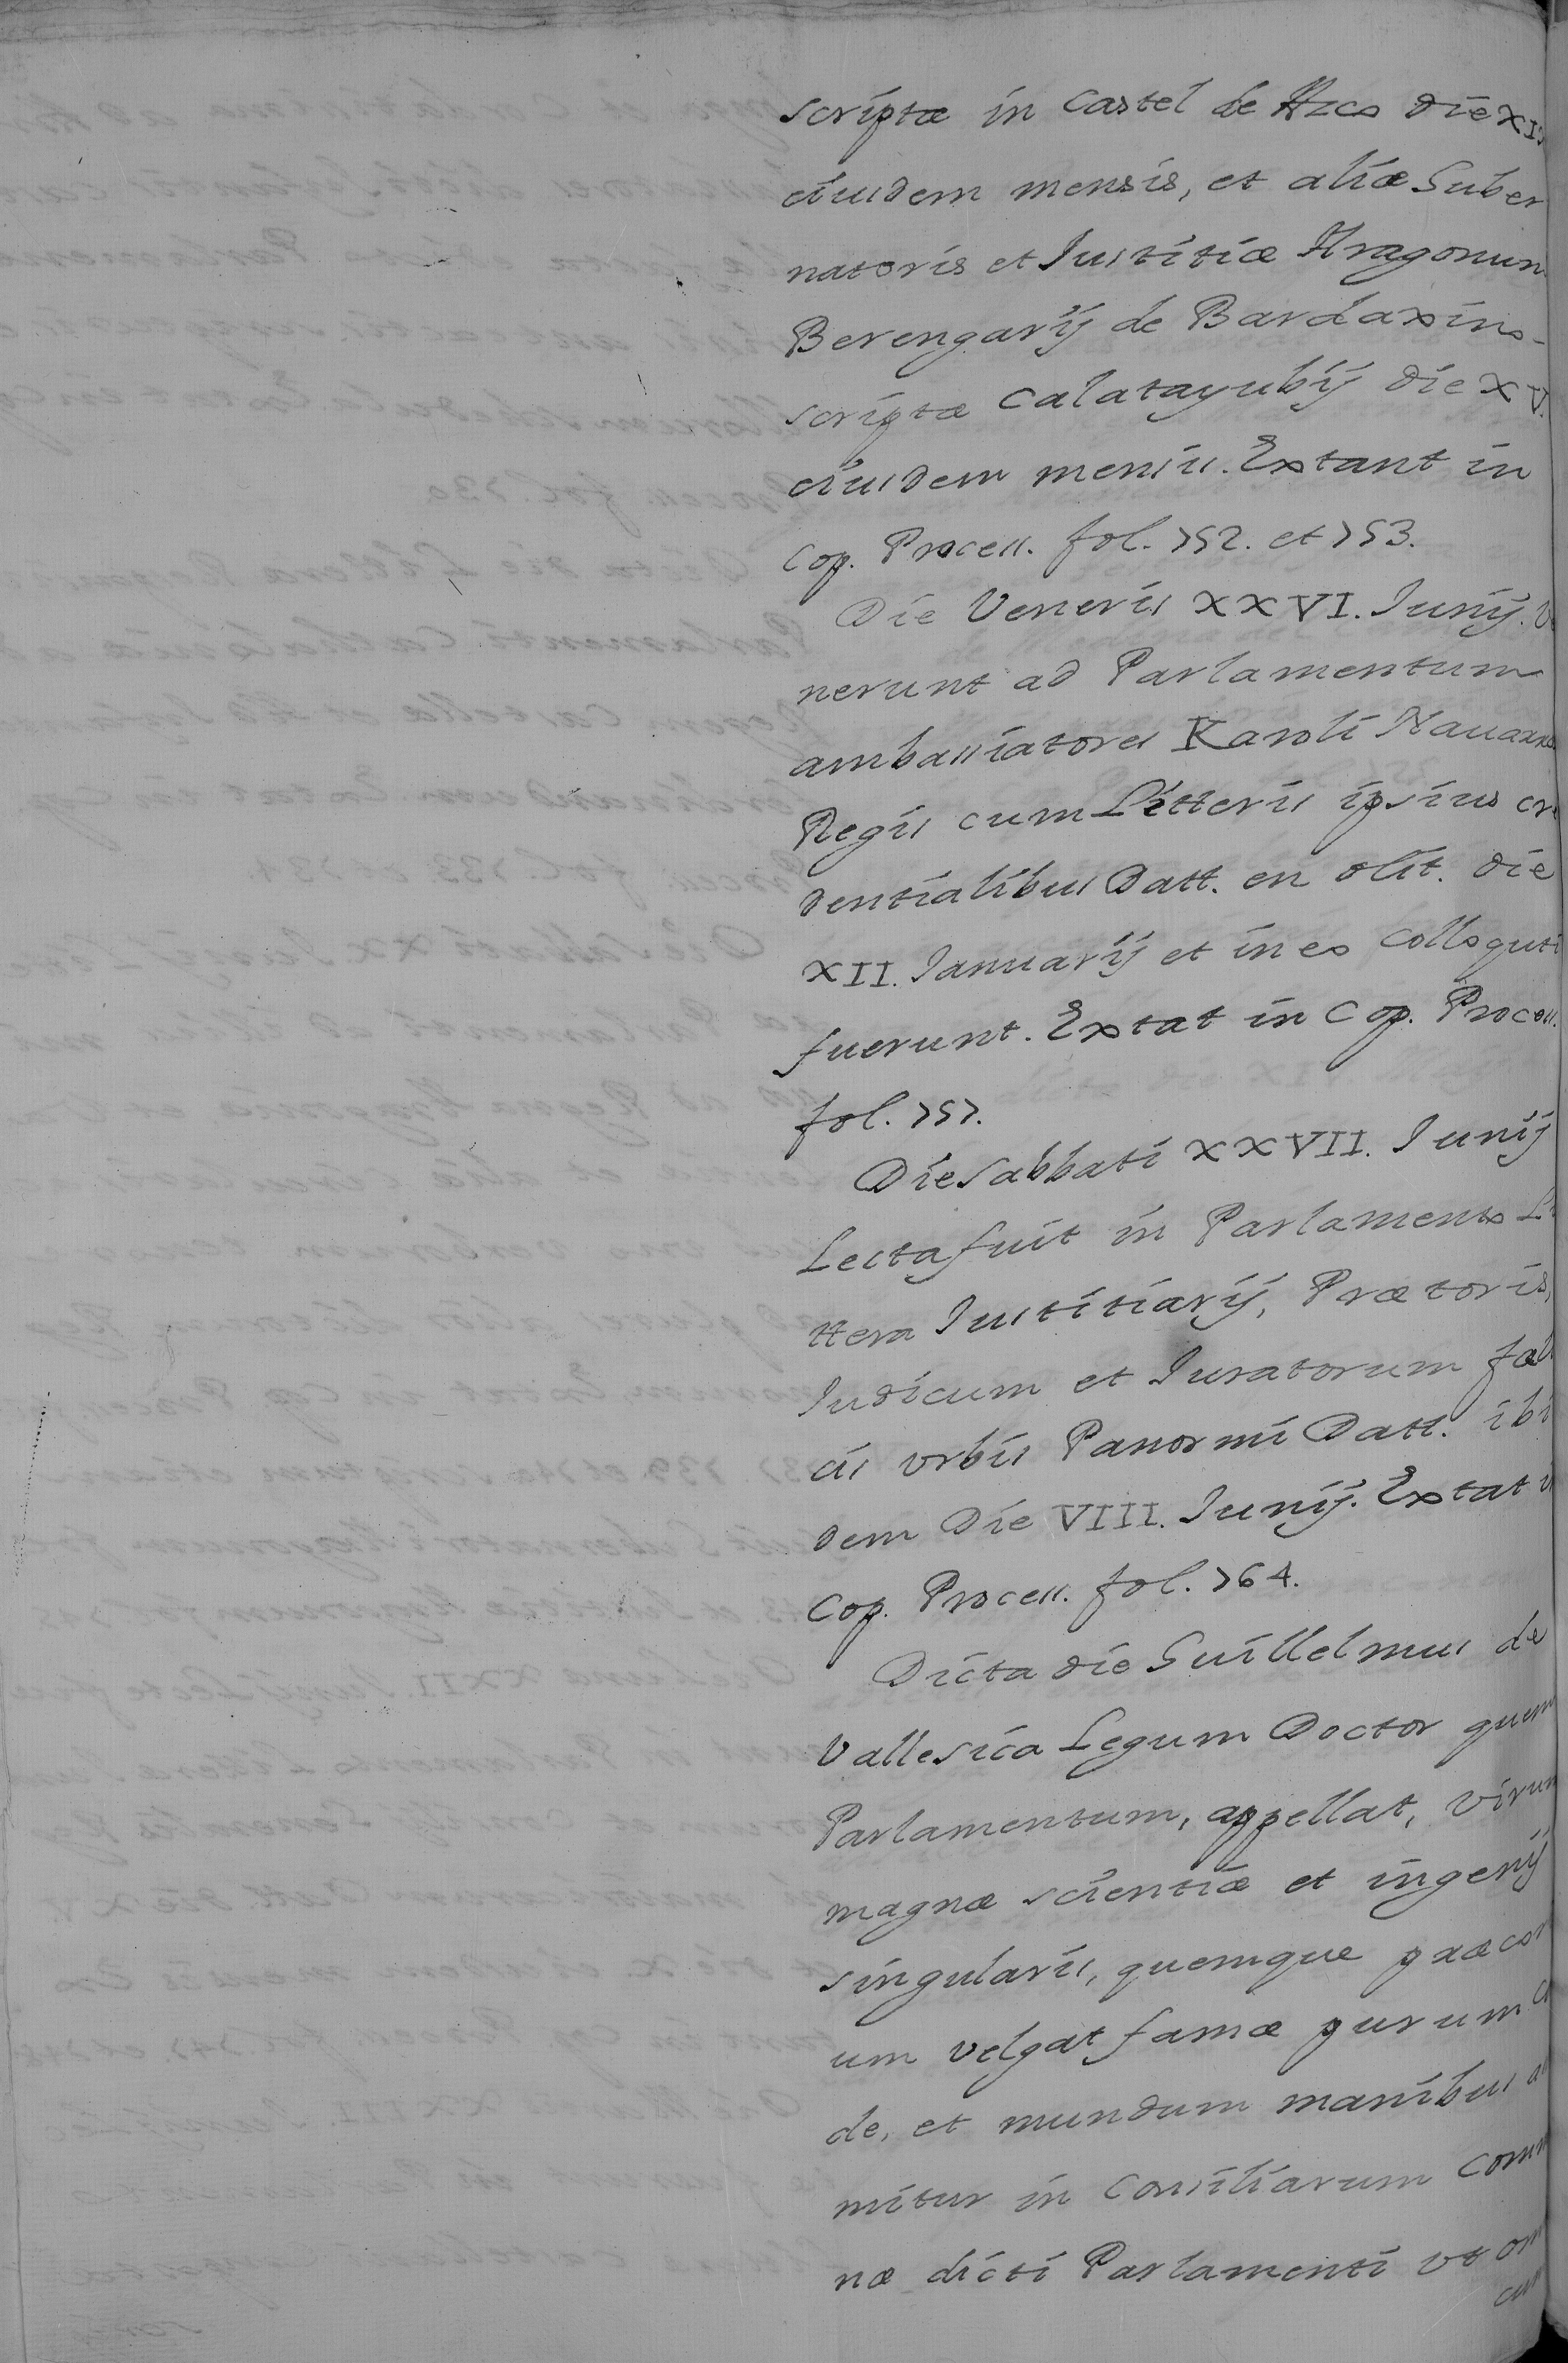 scriptæ in Castel de Azco die XII
eiusdem mensis, et aliæ Guber
natoris et Iustitiæ Aragonum
Berengarij de Bardaxino
scriptæ Calatayubij die XV.
eiusdem mensis. Extant in
Cop. Process. fol. 752. et 753.
Die Veneris XXVI. Iunij. Ve
nerunt ad Parlamentum
ambassiatores Karoli Nauarræ
Regis cum Litteris ipsius cre
dentialibus Datt. en Olit. die
XII. Ianuarij et in eo colloquti
fuerunt. Extat in Cop. Process.
fol. 757.
Die Sabbati XXVII. Iunij
Lecta fuit in Parlamento Li
ttera Iustitiarij, Prætoris,
Iudicum et Iuratorum fæli
cis vrbis Panormi Datt. ibi
dem Die VIII. Iunij. Extat in
Cop. Process. fol. 764.
Dicta die Guillelmus de
Vallesica Legum Doctor quem
Parlamentum, appellat, virum
magnæ scientiæ et ingenij
singularis, quemque præcon
um velgat famæ purum
de, et mundum manibus
mitur in Consiliarum Comm
næ dicti Parlamenti vt om
cum